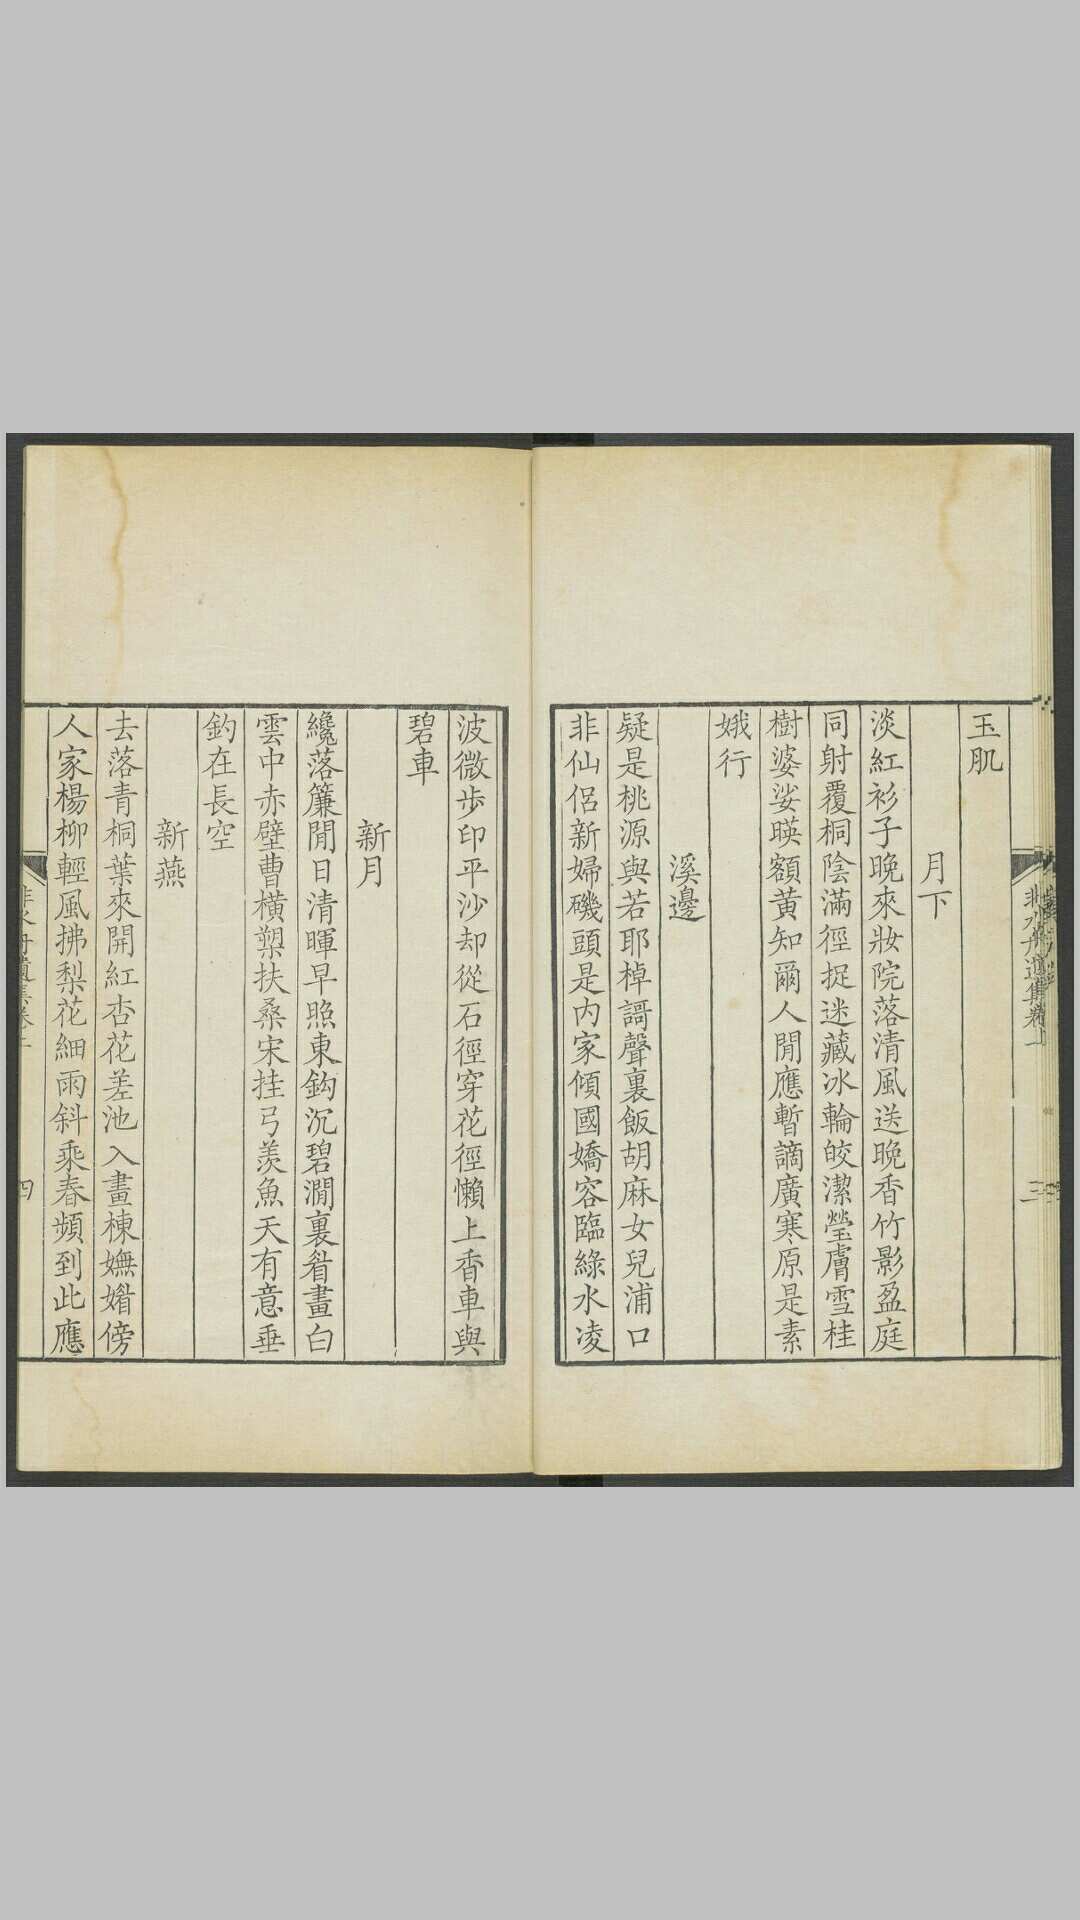 玉肌
月下
淡紅衫子晚來妝院落清風送晚香竹影盈庭
同射覆桐陰滿徑捉迷藏冰輪皎潔瑩膚雪桂
樹婆娑暎額黃知爾人閒應暫謫廣寒原是素
娥行
溪邊
疑是桃源與若耶棹謌聲裏飯胡麻女兒浦口
非仙侶新婦磯頭是內家傾國嬌容臨綠水凌
波微步印平沙却從石徑穿花徑懶上香車與
碧車
新月
纔落簾閒日清暉早照東鈎沉碧澗裏眉畫白
雲中赤壁曹橫槊扶桑宋挂弓羨魚天有意垂
釣在長空
新燕
去落青桐葉來開紅杏花差池入畫棟嫵媚傍
人家楊柳輕風拂梨花細雨斜乘春頻到此應
四